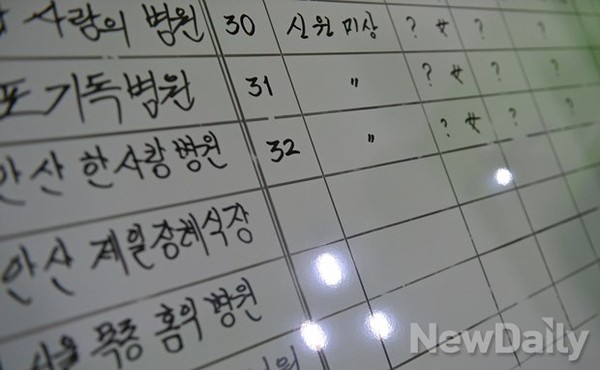 사랑의 병원 30 신원미상 ? 女 ? ?
포 기독병원 31 " ? 女 ? ?
안산 한사랑병원 32 " ? 女 ? ?
안산 제일장례식장
서울 목동 홈의 병원
의원
NewDaily